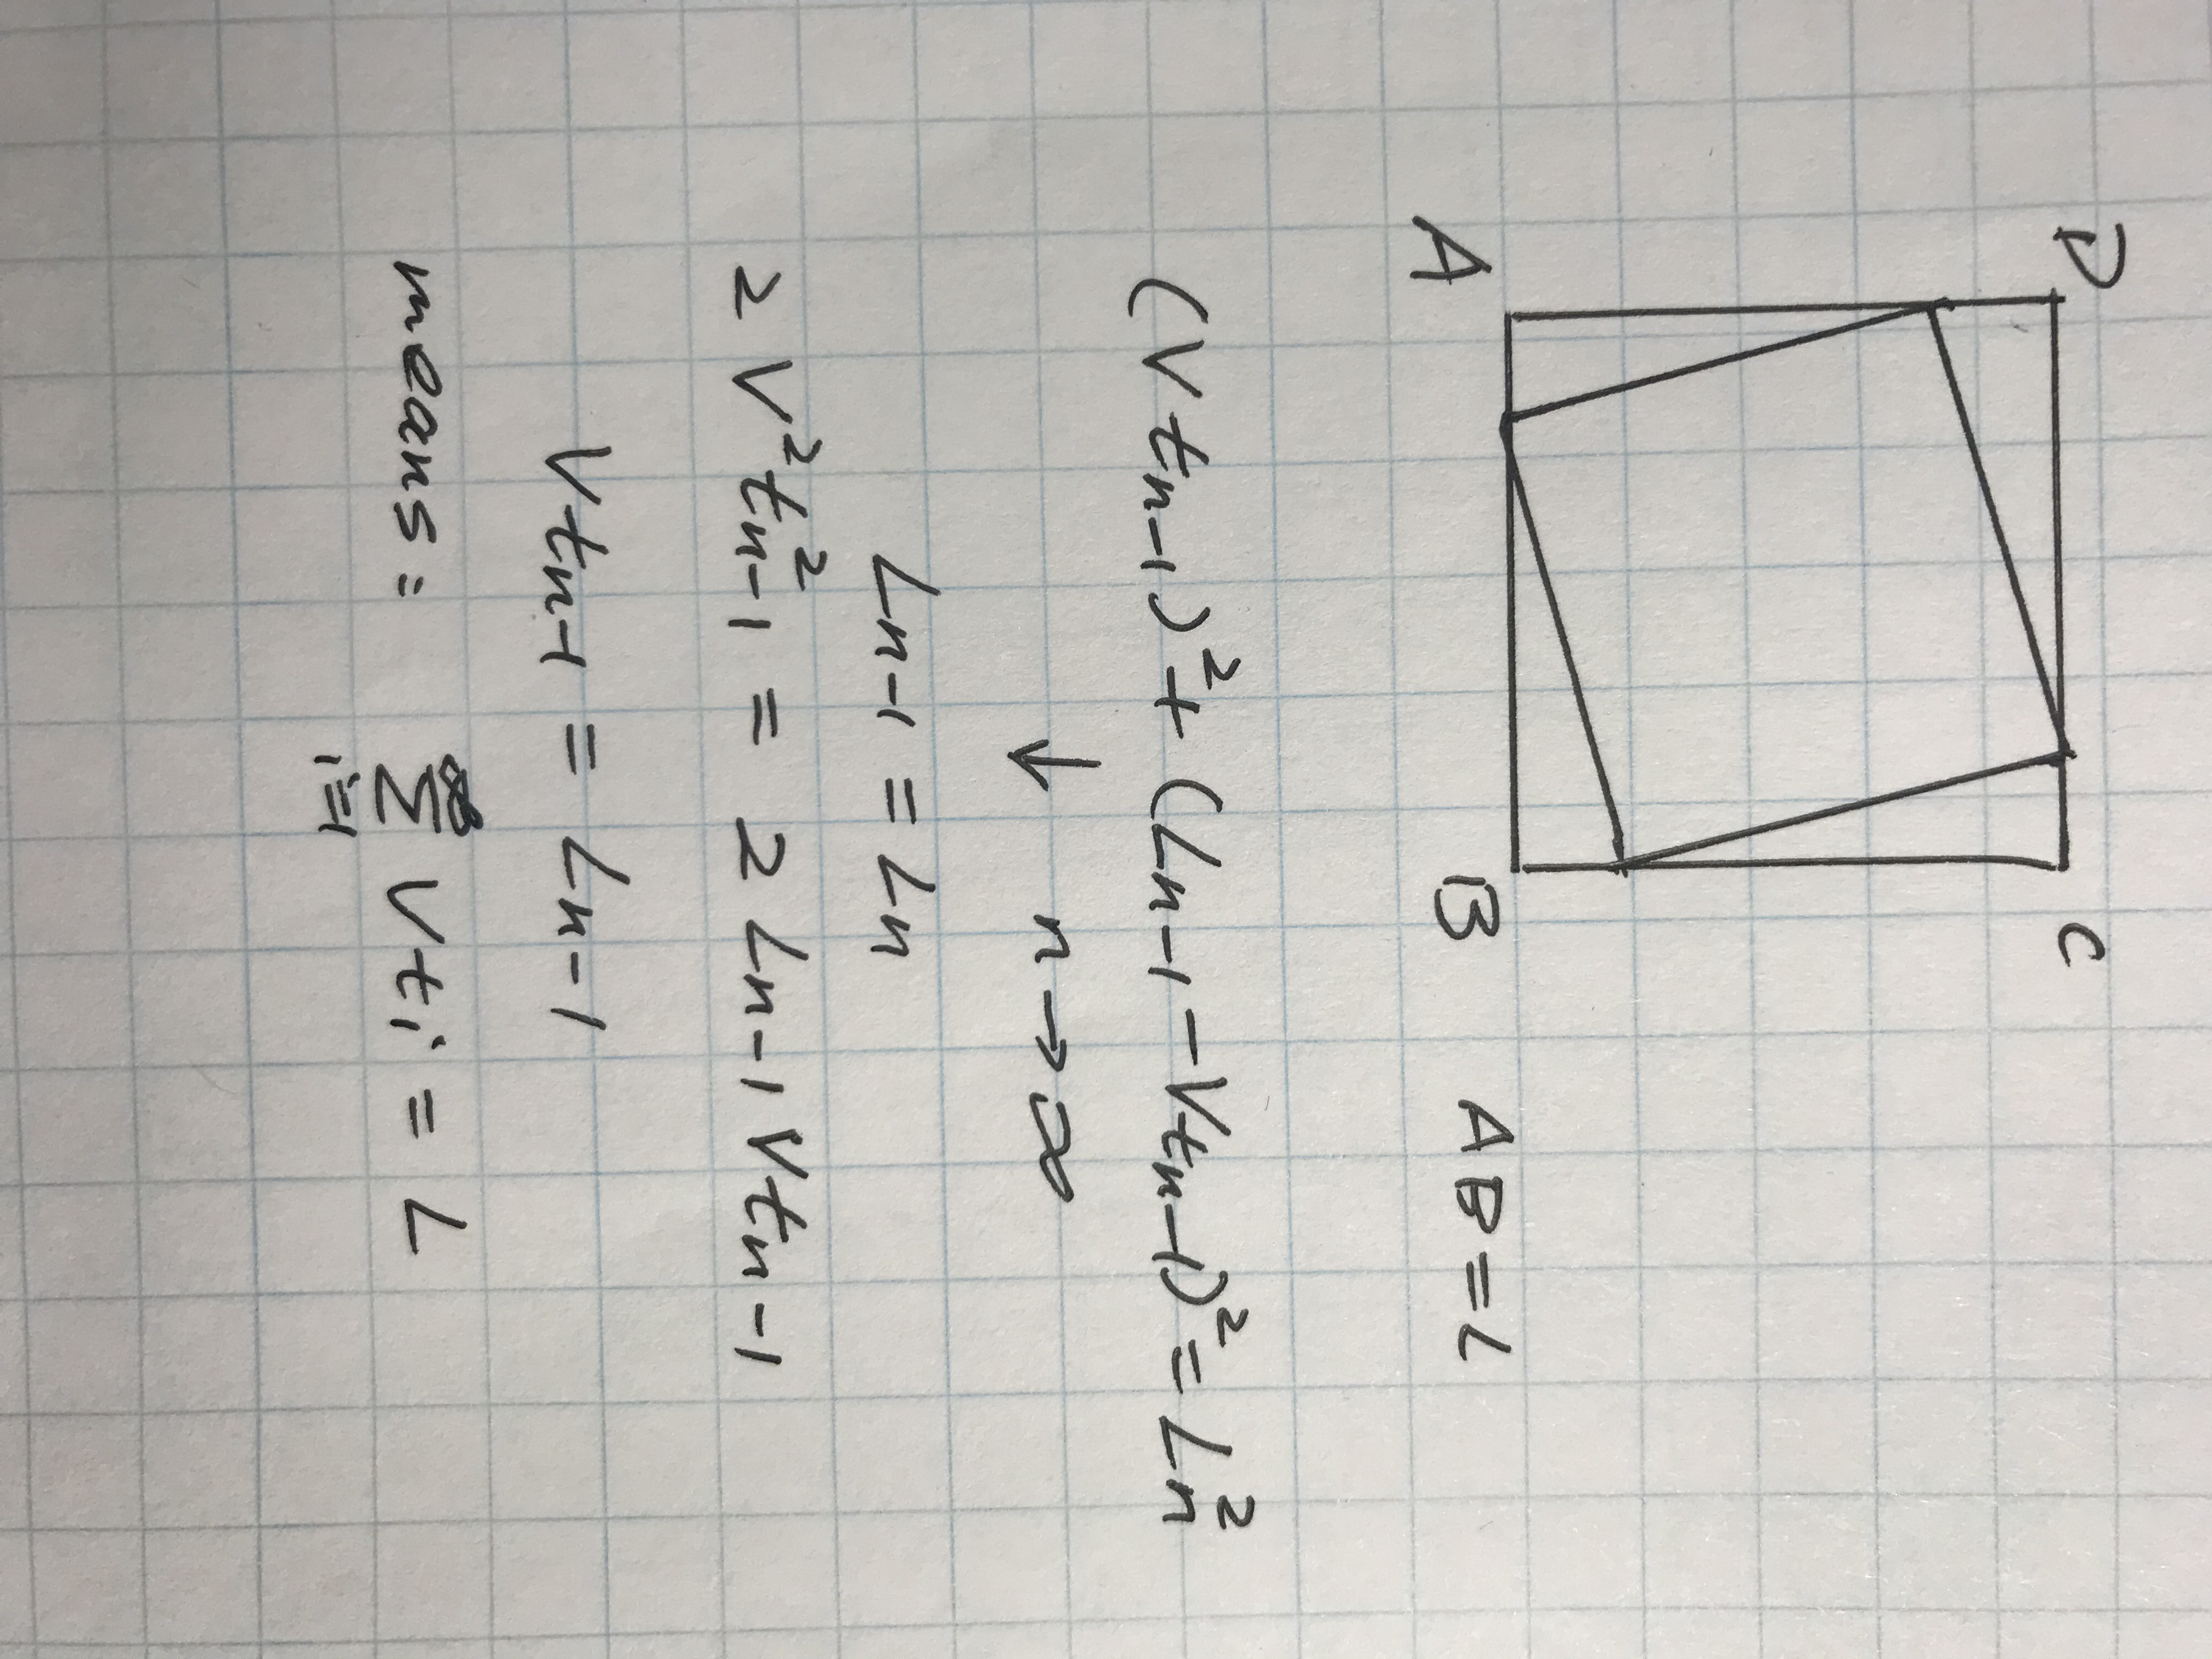 D C
A B AB=L
(Vtn-1)²+(Ln-1-Vtn-1)²=Ln²
↓ n→∞
Ln-1=Ln
2V²tn-1²=2Ln-1Vtn-1
Vtn-1=Ln-1
means: ∞∑i=1 Vti=L